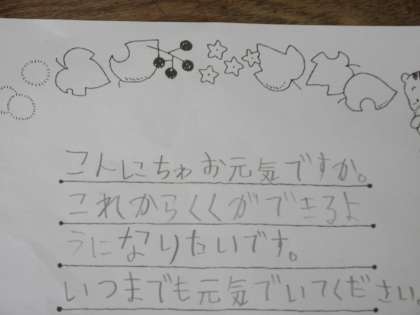 こんにちゎお元気ですか。
これからくくができるよ
うになりたいです。
いつまでも元気でいてください。